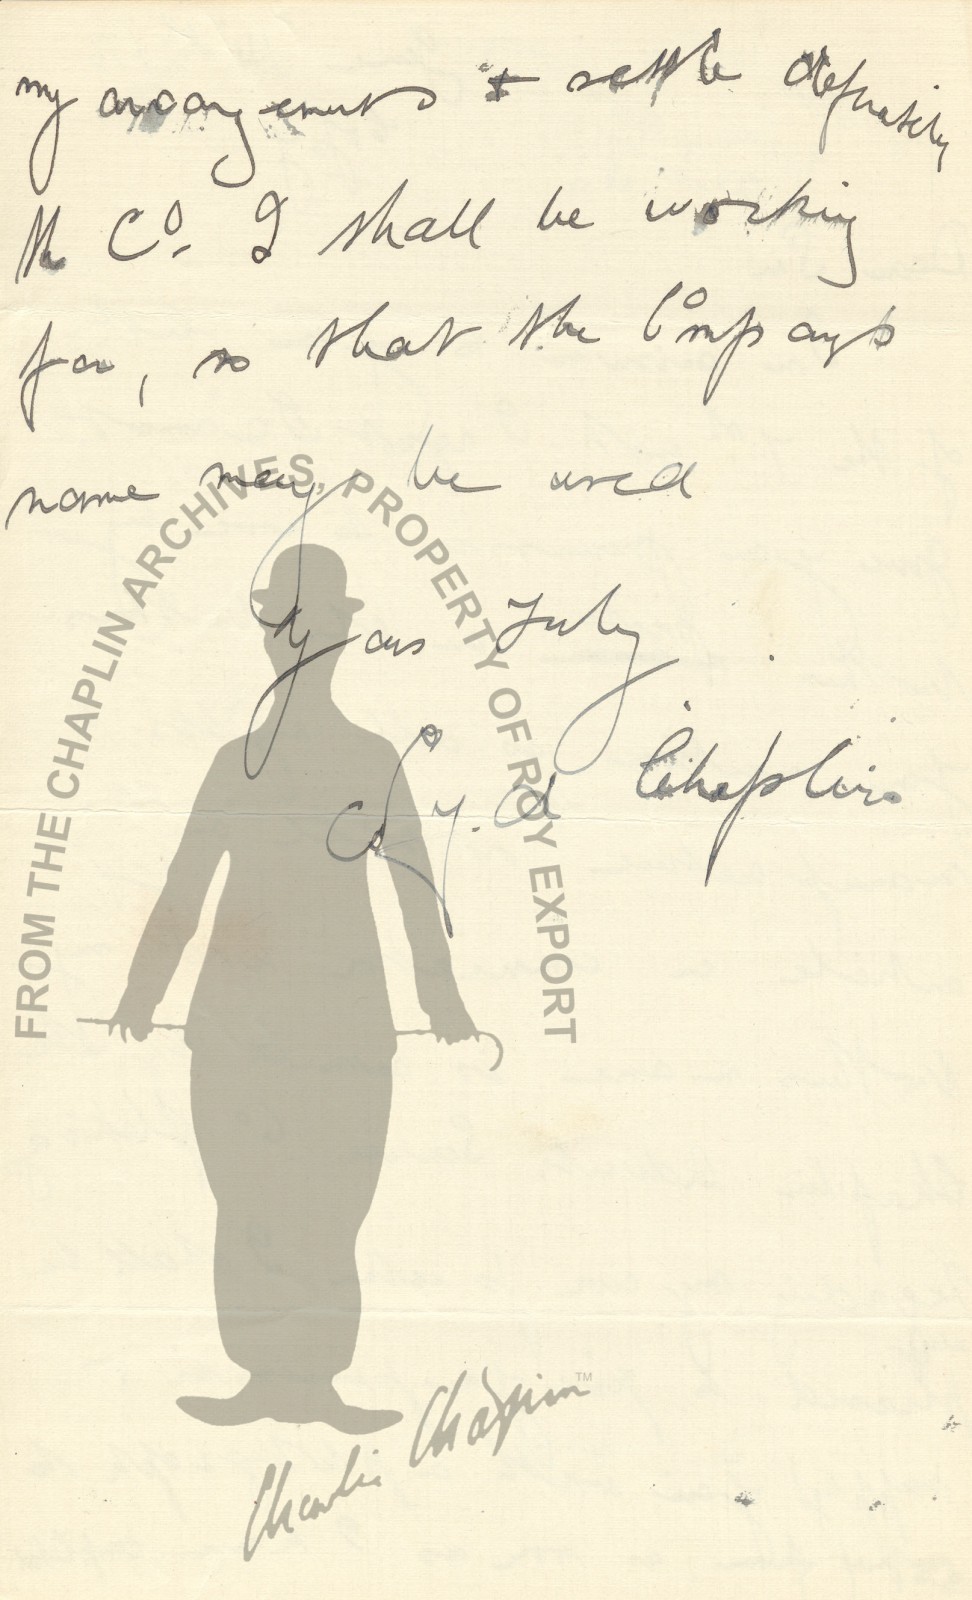 my arrangements + settle definitely
the Co. I shall be working
for, so that the Companys
name may be used
Yours Truly
Syd Chaplin
FROM THE CHAPLIN ARCHIVES, PROPERTY OF ROY EXPORT
Charlie Chaplin TM